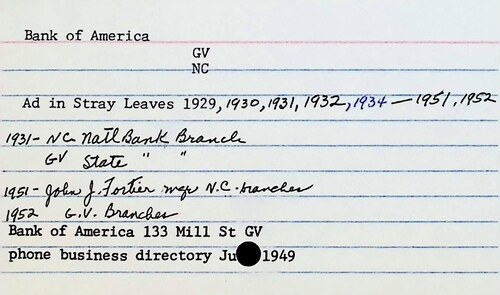 Bank of America
GV
NC
Ad in Stray Leaves 1929, 1930, 1931, 1932, 1934 — 1951, 1952
1931 - NC Natl Bank Branch
GV State " "
1951 - John J. Fortier mgr N.C. branches
1952 G.V. Branches
Bank of America 133 Mill St GV
phone business directory Ju 1949